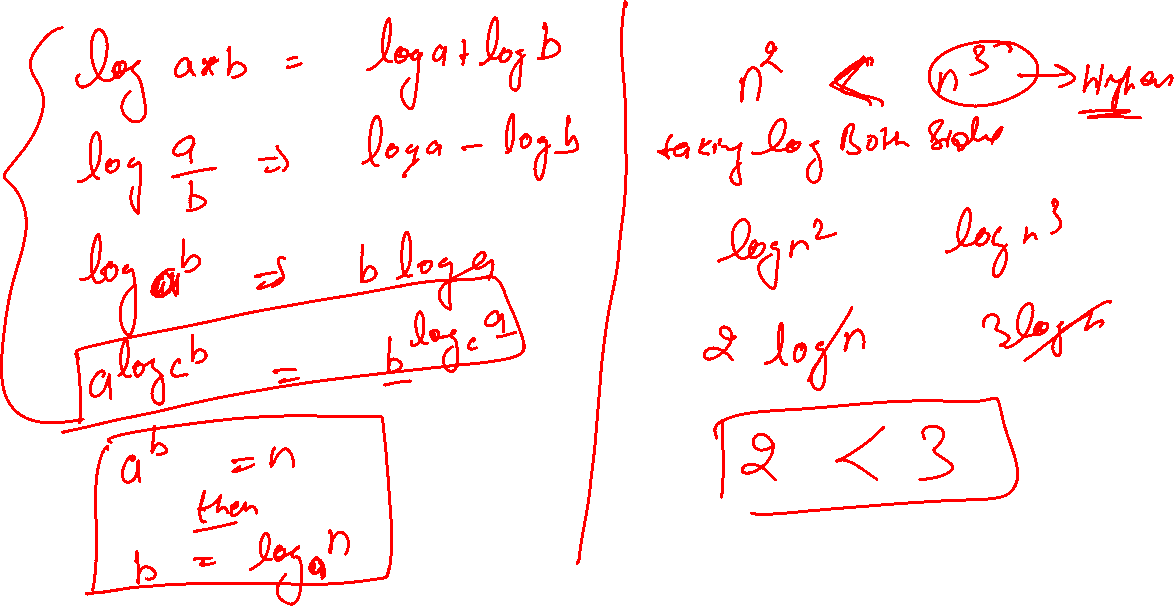 log a*b = log a + log b
log a/b => log a - log b
log a^b => b log a
a^log_c b = b^log_c a
a^b = n
then
b = log_a n
n^2 < n^3 → Higher
taking log Both Side
log n^2 log n^3
2 log n 3 log n
2 < 3